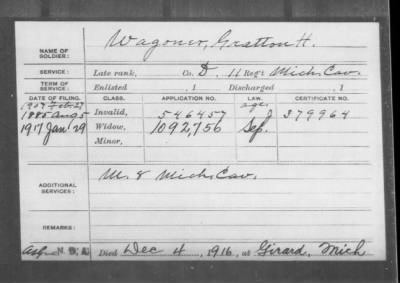 NAME OF SOLDIER: Wagoner, Gratton H.
SERVICE: Late rank, Co. D, 11 Reg't Mich. Cav.
TERM OF SERVICE: Enlisted , 1 Discharged , 1
DATE OF FILING. CLASS. APPLICATION NO. LAW. CERTIFICATE NO.
1907 Feb 27
1885 Aug 5 Invalid, 546457 379964
1917 Jan'29 Widow, 1092,756 Sep.
Minor,
ADDITIONAL SERVICES: M. & Mich. Cav.
REMARKS:
Died Dec 4, 1916, at Girard, Mich